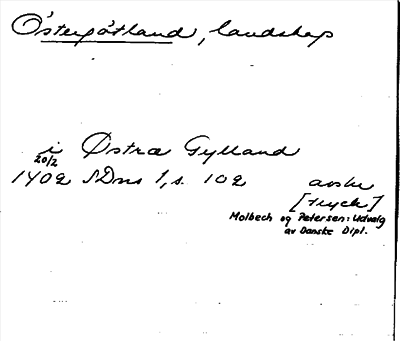 Östergötland, landskap
i Østra Gylland
20/2
1402 SDns 1, s. 102 avskr
[tryck]
Molbech og Petersen: Udvalg
av Danske Dipl.